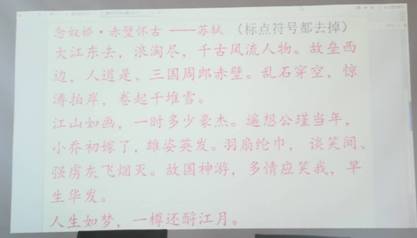 念奴娇·赤壁怀古 ——苏轼 (标点符号都去掉)
大江东去，浪淘尽，千古风流人物。故垒西
边，人道是、三国周郎赤壁。乱石穿空，惊
涛拍岸，卷起千堆雪。
江山如画，一时多少豪杰。遥想公瑾当年，
小乔初嫁了，雄姿英发。羽扇纶巾， 谈笑间、
强虏灰飞烟灭。故国神游，多情应笑我，早
生华发。
人生如梦，一樽还酹江月。